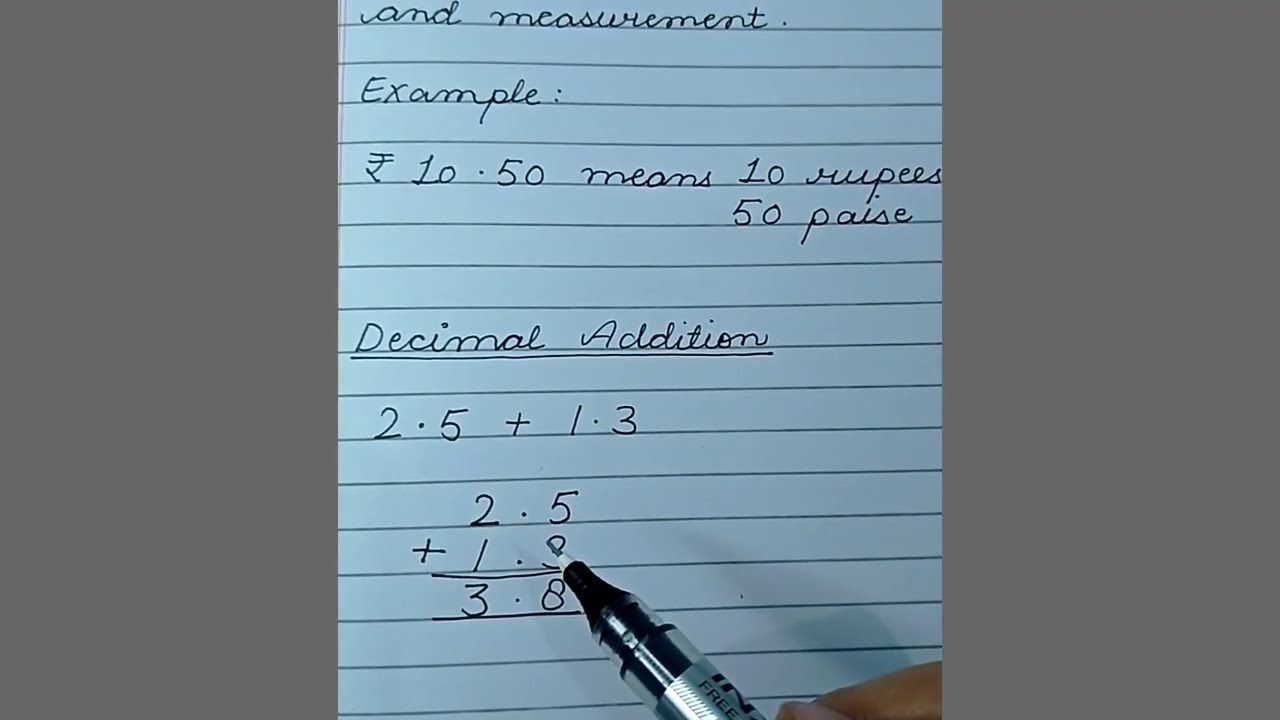 and measurement.
Example:
₹ 10.50 means 10 rupees
50 paise
Decimal Addition
2.5 + 1.3
2.5
+ 1.3
3.8
FREE